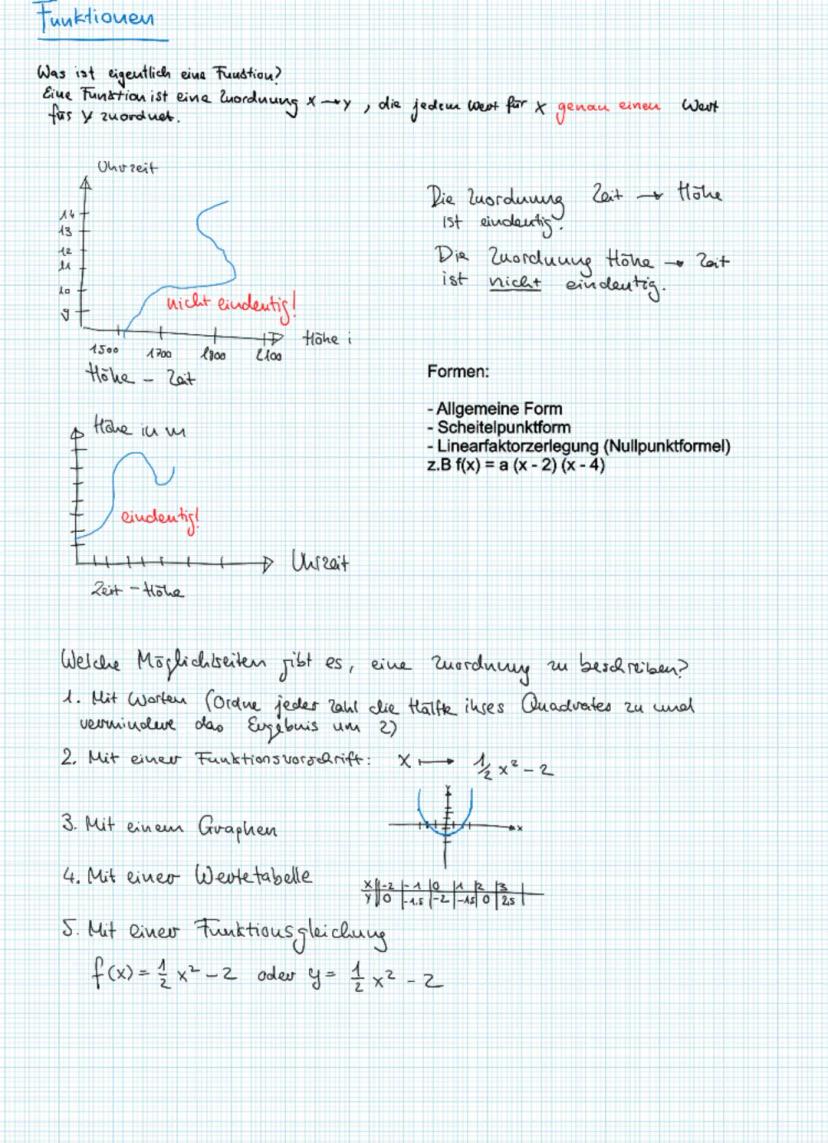 Funktionen
Was ist eigentlich eine Funktion?
Eine Funktion ist eine Zuordnung x → y, die jedem Wert für x genau einen Wert
für y zuordnet.
Uhrzeit
14
13
12
11
10
9
nicht eindeutig!
1500 1700 1900 2100
Höhe i
Höhe - Zeit
Die Zuordnung Zeit → Höhe
ist eindeutig.
Die Zuordnung Höhe → Zeit
ist nicht eindeutig.
Formen:
- Allgemeine Form
- Scheitelpunktform
- Linearfaktorzerlegung (Nullpunktformel)
z.B f(x) = a (x - 2) (x - 4)
Höhe in m
eindeutig!
Uhrzeit
Zeit - Höhe
Welche Möglichkeiten gibt es, eine Zuordnung zu beschreiben?
1. Mit Worten (Ordne jeder Zahl die Hälfte ihres Quadrates zu und
vermindere das Ergebnis um 2)
2. Mit einer Funktionsvorschrift: x ↦ 1/2 x² - 2
y
x
3. Mit einem Graphen
4. Mit einer Wertetabelle
x | -2 | -1 | 0 | 1 | 2 | 3
y | 0 | -1.5 | -2 | -1.5 | 0 | 2.5
5. Mit einer Funktionsgleichung
f(x) = 1/2 x² - 2 oder y = 1/2 x² - 2